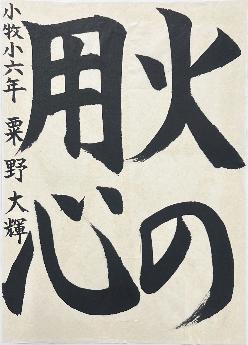 火の
用心
小牧小六年 粟野大輝